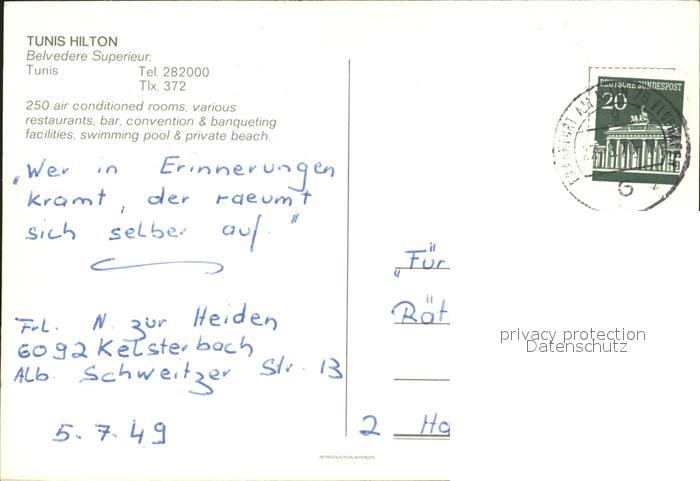 TUNIS HILTON
Belvedere Superieur,
Tunis Tel. 282000
Tlx. 372
250 air conditioned rooms, various
restaurants, bar, convention & banqueting
facilities, swimming pool & private beach.
„Wer in Erinnerungen
kramt, der raeumt
sich selber auf."
Frl. N. zur Heiden
6092 Kelsterbach
Alb. Schweitzer Str. 13
5.7.49
DEUTSCHE BUNDESPOST
20
FRANKFURT AM
„Für
Rät
2 Ha
privacy protection
Datenschutz
REPRODUCTION INTERDITE